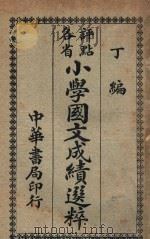 丁編
評點各省
小學國文成績選粹
中華書局印行